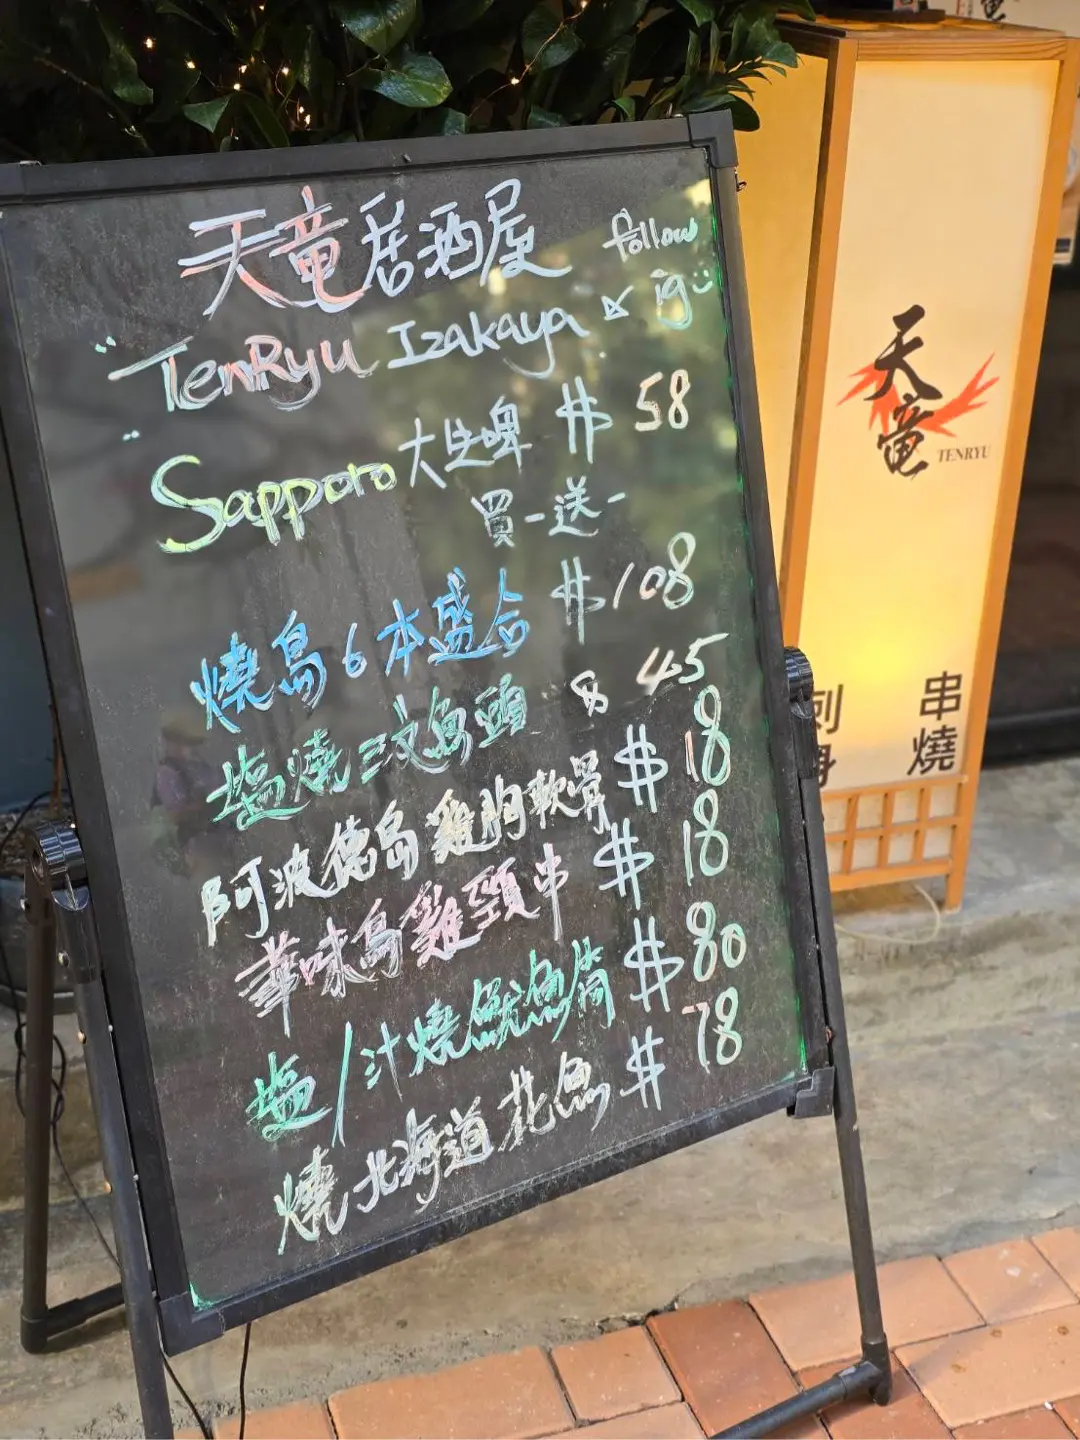 天竜居酒屋
follow
TenRyu Izakaya & ig
Sapporo 大生啤 $58
買一送一
燒鳥6本盛合 $108
塩燒三文魚頭 $45
阿波德島雞胸軟骨 $18
華味鳥雞頸串 $18
塩/汁燒魷魚筒 $80
燒北海道花魚 $78
天竜
TENRYU
刺身
串燒